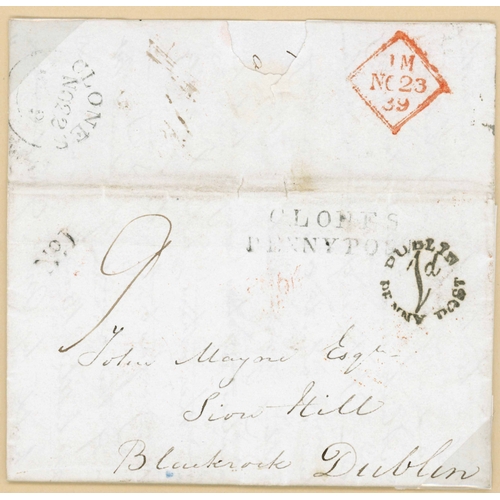 CLONE
NO 22
1M
NO 23
39
CLONES
PENNY POS
No 1
9
DUBLIN
1d
PENNY POST
John Mayne Esqr
Sion Hill
Blackrock Dublin